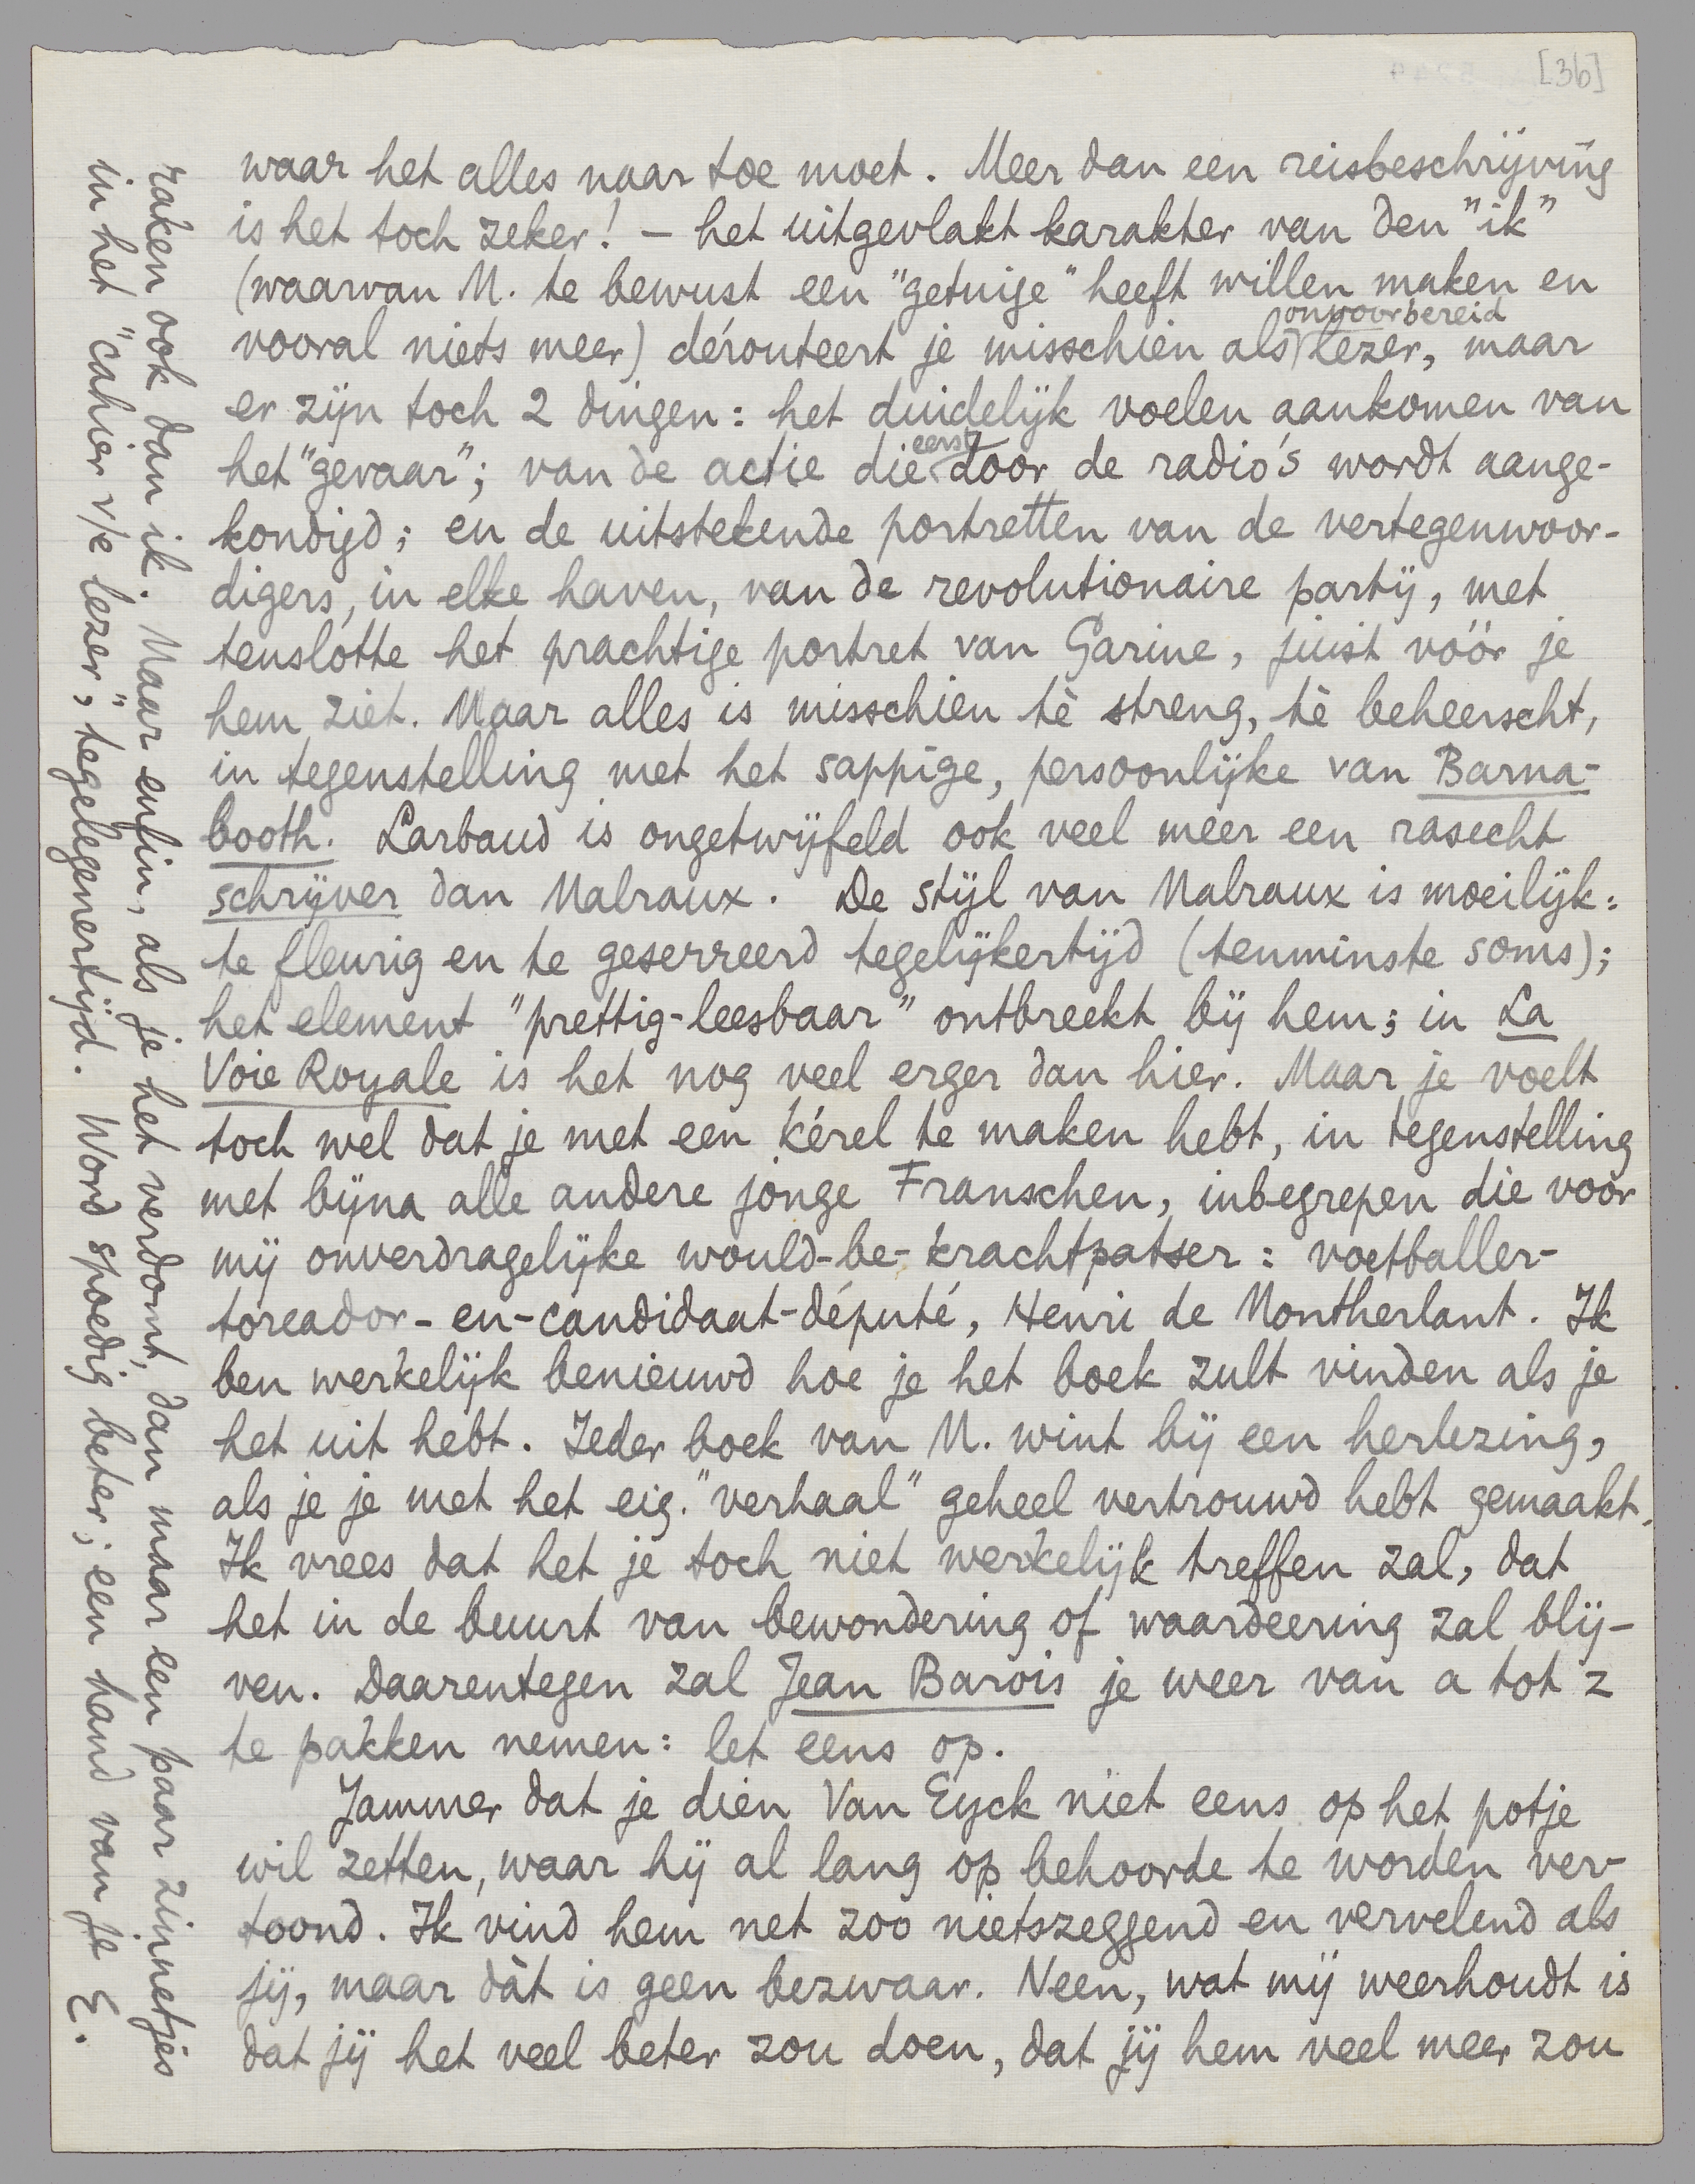 [36]
waar het alles naar toe moet. Meer dan een reisbeschrijving
is het toch zeker! – het uitgevlakt karakter van den "ik"
(waarvan M. te bewust een "getuige" heeft willen maken en
vooral niets meer) dérouteert je misschien als onvoorbereid lezer, maar
er zijn toch 2 dingen: het duidelijk voelen aankomen van
het "gevaar"; van de actie die eerst door de radio's wordt aange-
kondigd; en de uitstekende portretten van de vertegenwoor-
digers, in elke haven, van de revolutionaire partij, met
tenslotte het prachtige portret van Garine, juist vóór je
hem ziet. Maar alles is misschien tè streng, tè beheerscht,
in tegenstelling met het sappige, persoonlijke van Barna-
booth. Larbaud is ongetwijfeld ook veel meer een rasecht
schrijver dan Malraux. De stijl van Malraux is moeilijk:
te fleurig en te geserreerd tegelijkertijd (tenminste soms);
het element "prettig-leesbaar" ontbreekt bij hem; in La
Voie Royale is het nog veel erger dan hier. Maar je voelt
toch wel dat je met een kérel te maken hebt, in tegenstelling
met bijna alle andere jonge Franschen, inbegrepen die voor
mij onverdragelijke would-be-krachtpatser: voetballer-
toreador-en-candidaat-député, Henri de Montherlant. Ik
ben werkelijk benieuwd hoe je het boek zult vinden als je
het uit hebt. Ieder boek van M. wint bij een herlezing,
als je je met het eig. "verhaal" geheel vertrouwd hebt gemaakt.
Ik vrees dat het je toch niet werkelijk treffen zal, dat
het in de buurt van bewondering of waardeering zal blij-
ven. Daarentegen zal Jean Barois je weer van a tot z
te pakken nemen: let eens op.
Jammer dat je dien Van Eyck niet eens op het potje
wil zetten, waar hij al lang op behoorde te worden ver-
toond. Ik vind hem net zoo nietszeggend en vervelend als
jij, maar dàt is geen bezwaar. Neen, wat mij weerhoudt is
dat jij het veel beter zou doen, dat jij hem veel meer zou
raken ook dan ik. Maar enfin, als je het verdomt, dan maar een paar zinnetjes
in het "cahier v/e lezer", tegelegenertijd. Word spoedig beter; een hand van je E.